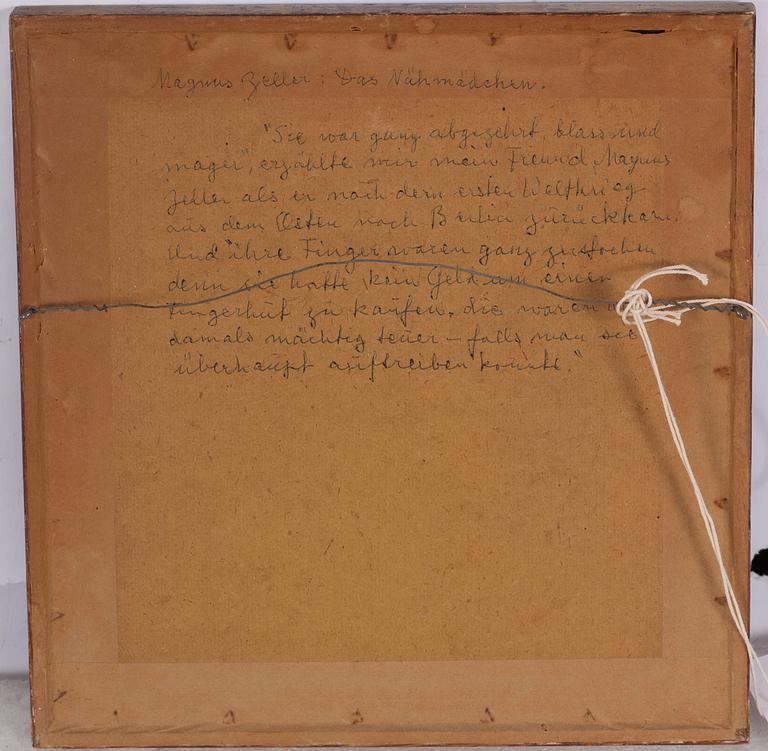 Magnus Zeller: Das Nähmädchen.
"Sie war ganz abgezehrt, blass und
mager", erzählte mir mein Freund Magnus
Zeller als er nach dem ersten Weltkrieg
aus dem Osten nach Berlin zurückkam.
Und "ihre Finger waren ganz zerstochen
denn sie hatte kein Geld um einen
Fingerhut zu kaufen. Die waren
damals mächtig teuer – falls man sie
überhaupt auftreiben konnte."